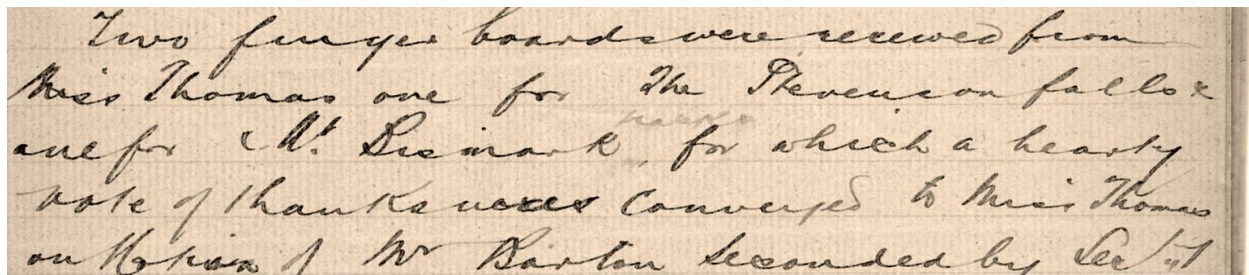 Two finger boards were received from
Miss Thomas one for The Stevenson falls &
one for Mt. Bismark, for which a hearty
vote of thanks was conveyed to Miss Thomas
on Motion of Mr Barton Seconded by